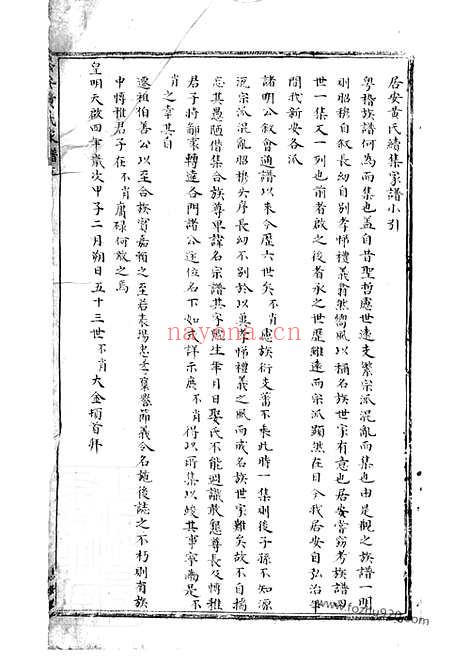 居安黃氏續集家譜小引
粵稽族譜何為而集也盖自昔聖哲慮世遠支繁宗派混亂而集也由是觀之族譜一明
則昭穆自叙長幼自別孝悌禮義翕然嚮風以稱名族世家有意也居安嘗窃考族譜初
世一集又一列也前者啟之後者承之世歷雖遠而宗派顯然在目今我居安自弘治年
間我新安各派
諸明公叙會通譜以來今歷六世矣不肖慮族衍支蕃不乘此時一集則後子孫不知源
派宗派混亂昭穆失序長幼不別於以兼孝悌禮義之風而成名族世家難矣故不自揣
忘其愚陋僭集合族尊卑諱名宗譜其字
生年月日娶氏不能週識敢懇尊長及博雅
君子將鄙
轉達各門諸公
位名下如
詳示庶不肖得以所集以竣其事寧為是不
肖之幸其自
遷祖伯善公以至合族實嘉賴之至若表揚忠孝
譽節義令名
後誌之不朽則有族
中博雅君子在不肖庸碌何敢之焉
皇明天啟四年歲次甲子二月朔日五十三世不肖大金頓首拜
nayona.cn
www.fozhu920.com